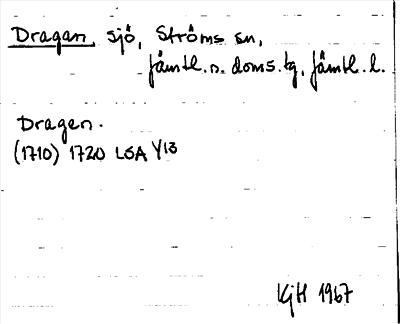 Dragan, sjö, Ströms sn,
Jämtl. n. doms.tg, Jämtl. l.
Dragen.
(1710) 1720 LSA Y13
KjH 1967